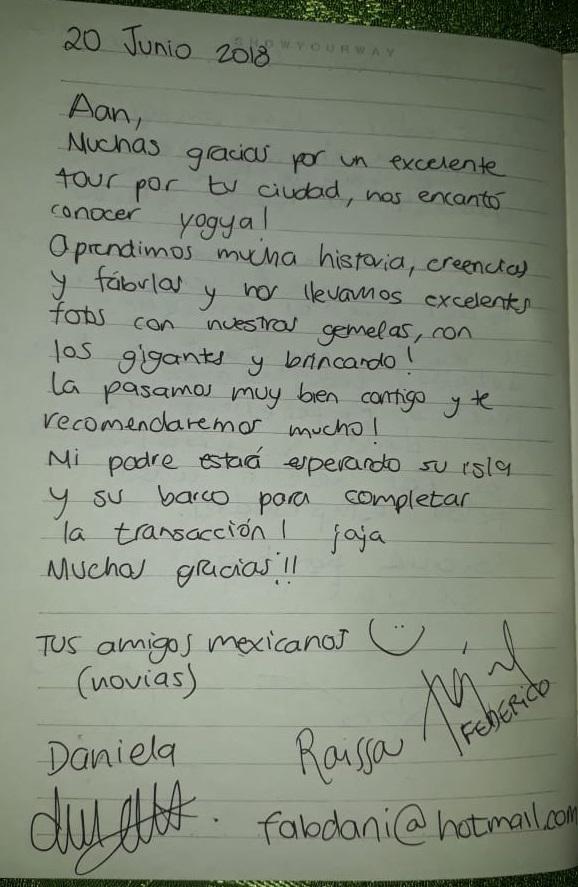 SHOWYOURWAY
20 Junio 2018
Aan,
Muchas gracias por un excelente
tour por tu ciudad, nos encantó
conocer yogya!
Aprendimos mucha historia, creencias
y fábulas y nos llevamos excelentes
fotos con nuestras gemelas, con
los gigantes y brincando!
La pasamos muy bien contigo y te
recomendaremos mucho!
Mi padre estará esperando su isla
y su barco para completar
la transacción! jaja
Muchas gracias!!
Tus amigos mexicanos
(novias)
FEDERICO
Daniela Raissa
fabdani@hotmail.com